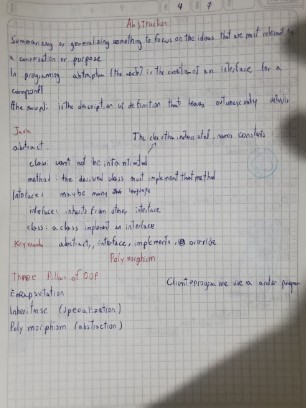 4 7
Abstraction
Summarising or generalising something to focus on the ideas that are most relevant to
a conversation or purpose
In programing abstraction (the verb) is the creation of an interface for a
component
(the noun) is the description or definition that leaves out unnecessary
Java
abstract
The class that is not names constants
class: will not be instantiated
method: the derived class must implement that method
Interface: maybe many
interface: inherits from other interface
class: a class implement an interface
Keywords abstract, interface, implements, override
Polymorphism
Three Pillar of OOP
Client program we use a under program
Encapsulation
Inheritance (specialization)
Polymorphism (abstraction)